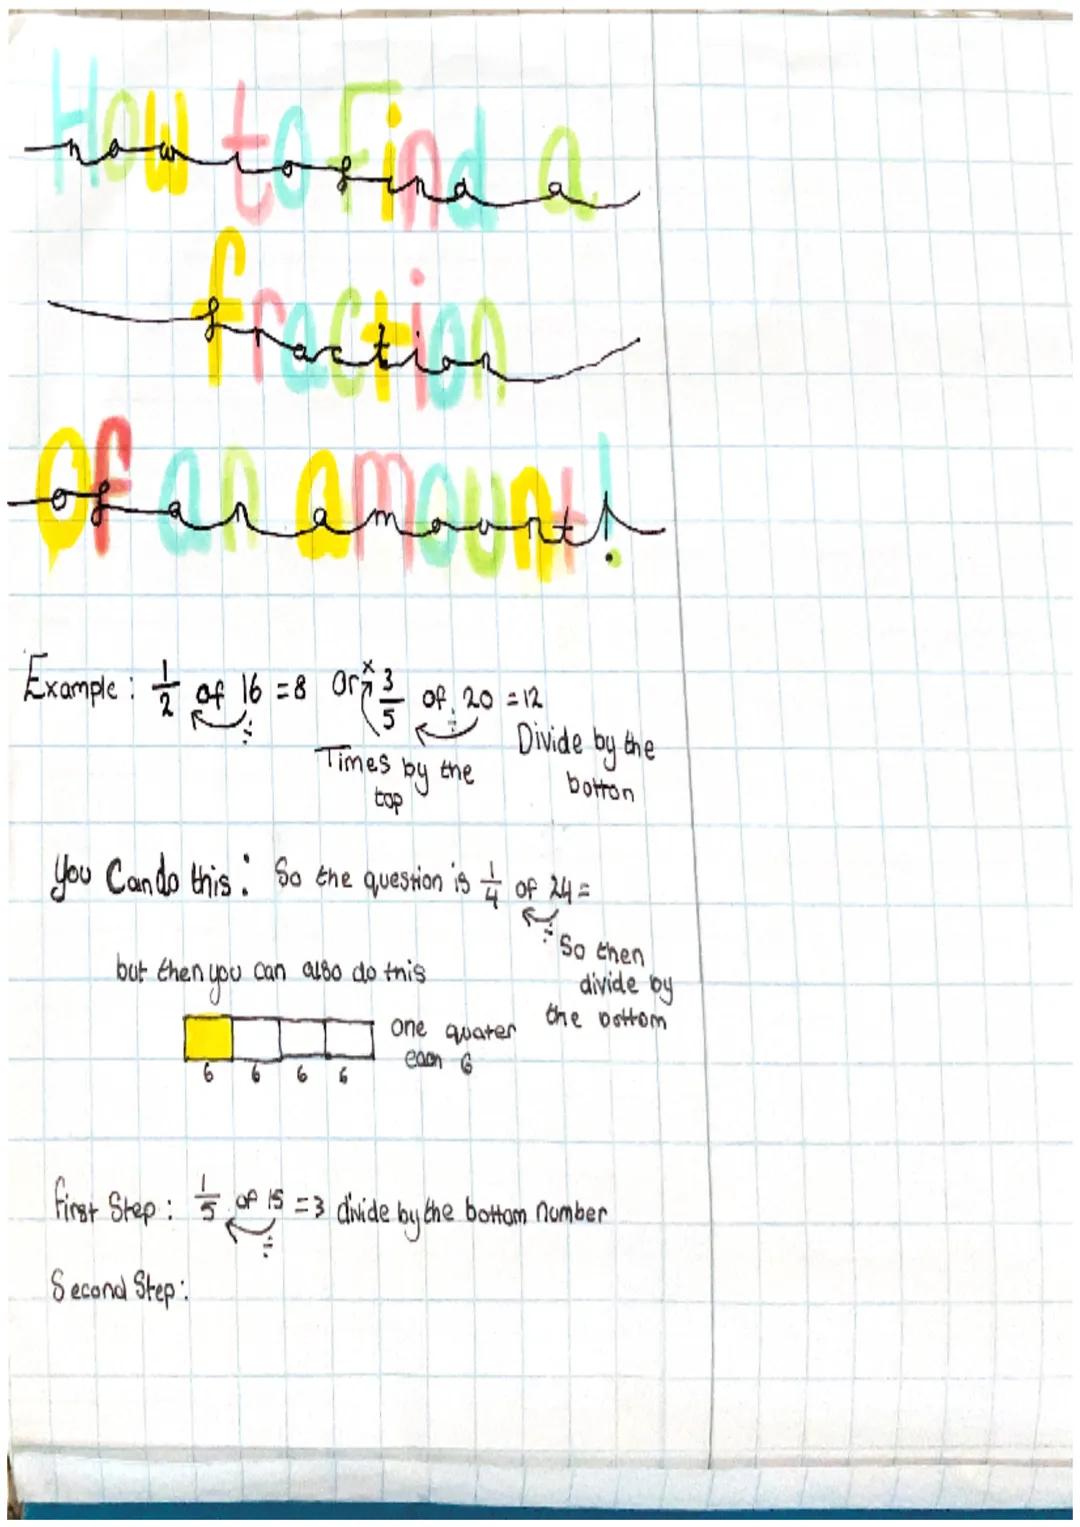 How to Find a
how to find a
fraction
fraction
Of an amount!
of an amount!
Example : 1/2 of 16 = 8 Or × 3/5 of 20 = 12
÷ ÷
Times by the
top
Divide by the
botton
you Can do this : So the question is 1/4 of 24 =
÷
So then
divide by
the bottom
but then you can also do this
one quater
each 6
6 6 6 6
first Step : 1/5 of 15 = 3 divide by the bottom number
÷
Second Step :